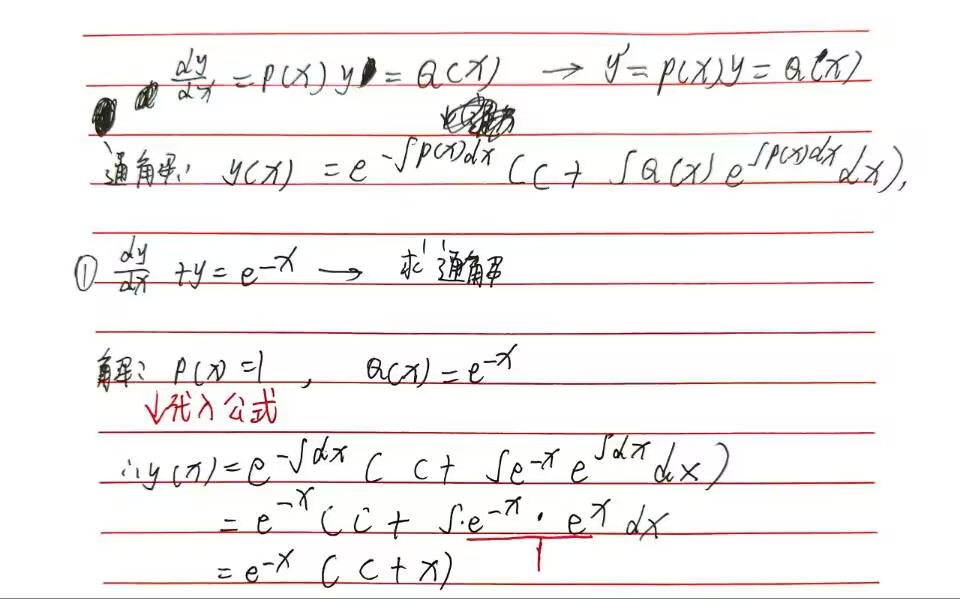 dy/dx = P(x) y = Q(x) → y' = P(x) y = Q(x)
通解: y(x) = e^{-∫P(x)dx} (C + ∫Q(x) e^{∫P(x)dx} dx),
① dy/dx + y = e^{-x} → 求通解
解: P(x) = 1 , Q(x) = e^{-x}
↓代入公式
∴ y(x) = e^{-∫dx} ( C + ∫e^{-x} e^{∫dx} dx )
= e^{-x} ( C + ∫·e^{-x} · e^{x} dx
1
= e^{-x} ( C + x )